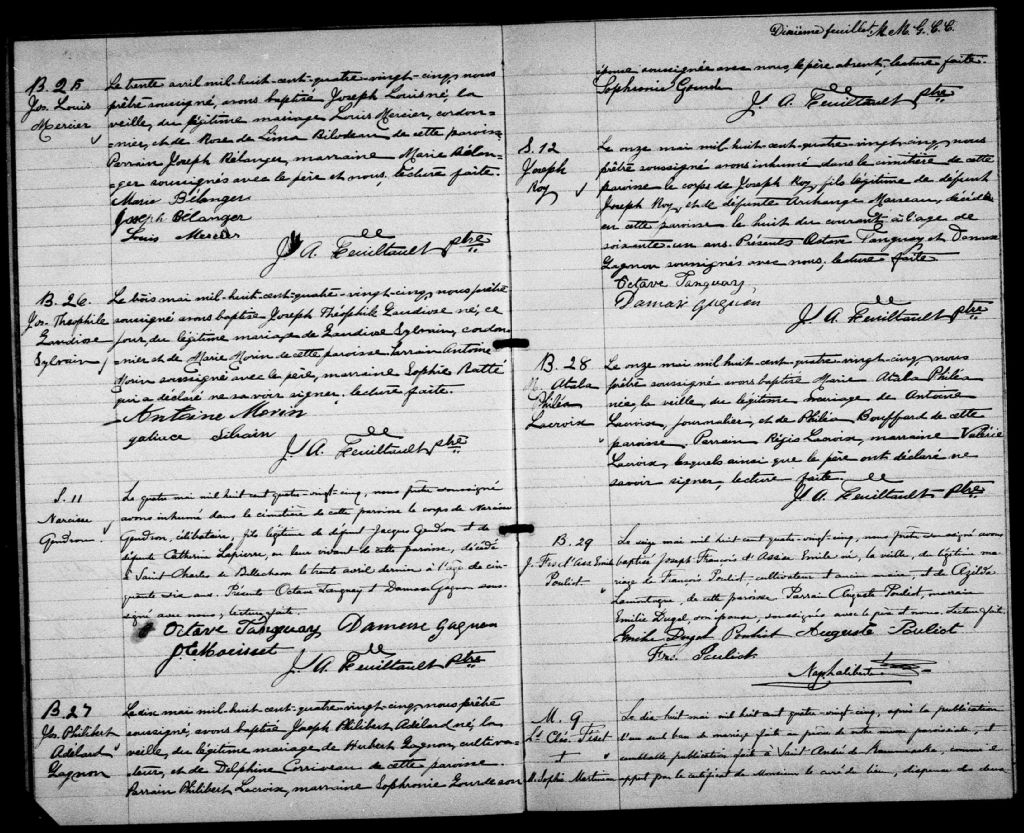 B. 25
Jos. Louis
Mercier
Le trente avril mil-huit-cent-quatre-vingt-cinq, nous
prêtre soussigné, avons baptisé Joseph Louis né, la
veille, du légitime mariage, Louis Mercier, cordon-
nier, et de Rose de Lima Bilodeau de cette paroisse
Parrain Joseph Bélanger, marraine Marie Bélan-
ger soussignés avec le père et nous, lecture faite.
Marie Bélanger
Joseph Bélanger
Louis Mercier
J. A. Feuiltault ptre
B. 26.
Jos. Théophile
Gaudiose
Sylvain
Le trois mai mil-huit-cent-quatre-vingt-cinq, nous prêtre
soussigné avons baptisé Joseph Théophile Gaudiose né, ce
jour, du légitime mariage de Gaudiose Sylvain, cordon-
nier et de Marie Morin de cette paroisse. Parrain Antoine
Morin soussigné avec le père, marraine Sophie Ratté
qui a déclaré ne savoir signer, lecture faite.
Antoine Morin
J. A. Feuiltault ptre
S. 11
Narcisse
Gendron
Le quatre mai mil huit cent quatre-vingt-cinq, nous prêtre soussigné
avons inhumé dans le cimetière de cette paroisse le corps de Narcisse
Gendron, célibataire, fils légitime de défunt Jacques Gendron et de
défunte Catherine Lapierre, en leur vivant de cette paroisse, décédé
à Saint Charles de Bellechasse le trente avril dernier à l'âge de cin-
quante six ans. Présents Octave Tanguay et Damase Gagnon sous-
signés avec nous, lecture faite.
Octave Tanguay Damase Gagnon
J. A. Feuiltault ptre
B. 27
Jos. Philibert
Adélard
Gagnon
Le dix mai mil-huit-cent-quatre-vingt-cinq, nous prêtre
soussigné, avons baptisé Joseph Philibert Adélard né, la
veille, du légitime mariage de Hubert Gagnon, cultiva-
teur, et de Delphine Corriveau de cette paroisse.
Parrain Philibert Lacroix, marraine Sophronie Gourde son
Dixième feuillet. M. M. G. C. C.
épouse soussignée avec nous, le père absent, lecture faite.
Sophronie Gourde
J. A. Feuiltault ptre
S. 12
Joseph
Roy
Le onze mai mil-huit-cent-quatre-vingt-cinq, nous
prêtre soussigné avons inhumé dans le cimetière de cette
paroisse le corps de Joseph Roy, fils légitime de défunt
Joseph Roy, et de défunte Archange Marseau, décédé
en cette paroisse le huit du courant à l'âge de
soixante-un ans. Présents Octave Tanguay et Damase
Gagnon soussignés avec nous, lecture faite
Octave Tanguay,
Damase Gagnon
J. A. Feuiltault ptre
B. 28
M. Atala
Philéa
Lacroix
Le onze mai mil-huit-cent-quatre-vingt-cinq nous
prêtre soussigné avons baptisé Marie Atala Philéa
née, la veille, du légitime mariage de Antoine
Lacroix, journalier, et de Philéa Bouffard de cette
paroisse, Parrain Régis Lacroix, marraine Valérie
Lacroix, lesquels ainsi que le père ont déclaré ne
savoir signer, lecture faite.
J. A. Feuiltault ptre
B. 29
J. Frs d'Ass Emile
Pouliot
Le seize mai mil huit cent quatre-vingt-cinq, nous prêtre soussigné avons
baptisé Joseph François d'Assise Emile né, la veille, du légitime ma-
riage de François Pouliot, cultivateur et ancien maire, et de Azilda
Lamontagne, de cette paroisse. Parrain Auguste Pouliot, marraine
Emilie Dugal, son épouse, soussignés avec le père et nous. Lecture faite,
Emilie Dugal Pouliot Auguste Pouliot
Frs. Pouliot
M. 9
Ls Cléo. Fiset
&
M. Sophie Martineau
Le dix huit mai mil huit cent quatre-vingt-cinq, après la publication
d'un seul ban de mariage faite au prône de notre messe paroissiale, et
semblable publication faite à Saint André de, comme il
appert par le certificat de Monsieur le curé du lieu, dispense de deux